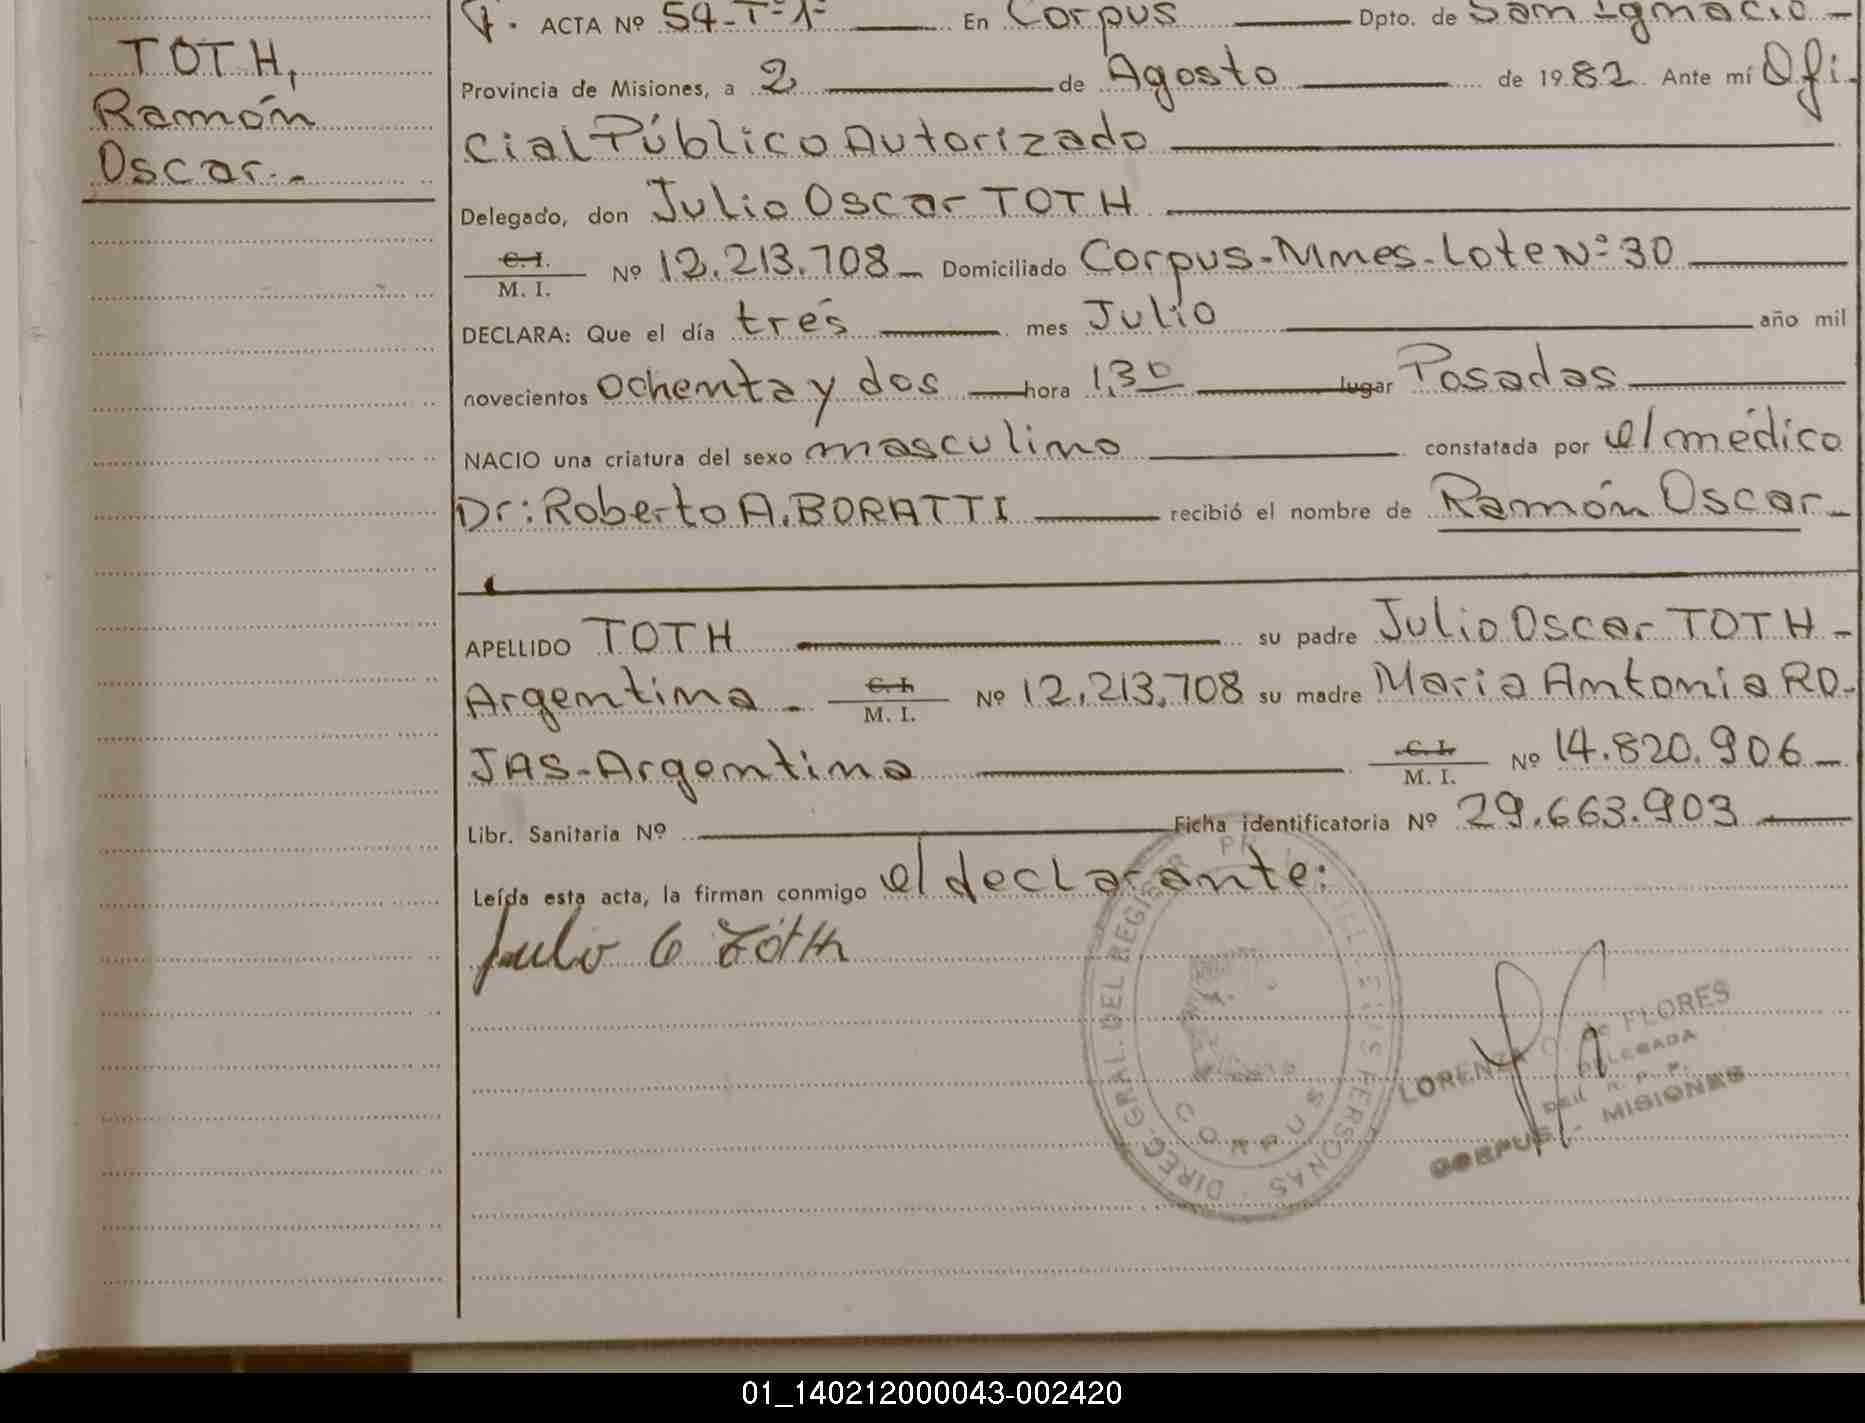 TOTH,
Ramón
Oscar.-
ACTA Nº 54-Tº1º En Corpus Dpto. de San Ignacio -
Provincia de Misiones, a 2 de Agosto de 1982 Ante mí Ofi-
cial Público Autorizado
Delegado, don Julio Oscar TOTH
C. I. M. I. Nº 12.213.708 - Domiciliado Corpus-Mnes-Lote Nº 30
DECLARA: Que el día tres mes Julio año mil
novecientos ochenta y dos hora 1,30 lugar Posadas
NACIO una criatura del sexo masculino constatada por el médico
Dr: Roberto A. BORATTI recibió el nombre de Ramón Oscar-
APELLIDO TOTH su padre Julio Oscar TOTH -
Argentina - C. I. M. I. Nº 12.213.708 su madre Maria Antonia RO-
JAS-Argentina C. I. M. I. Nº 14.820.906 -
Libr. Sanitaria Nº Ficha identificatoria Nº 29.663.903
Leída esta acta, la firman conmigo el declarante:
Julio O Toth
DIREC. GRAL. DEL REGISTR PR DE LAS PERSONAS
CORPUS
LORENZA O. de FLORES
DELEGADA
DEL R. P. P.
CORPUS - MISIONES
01_140212000043-002420